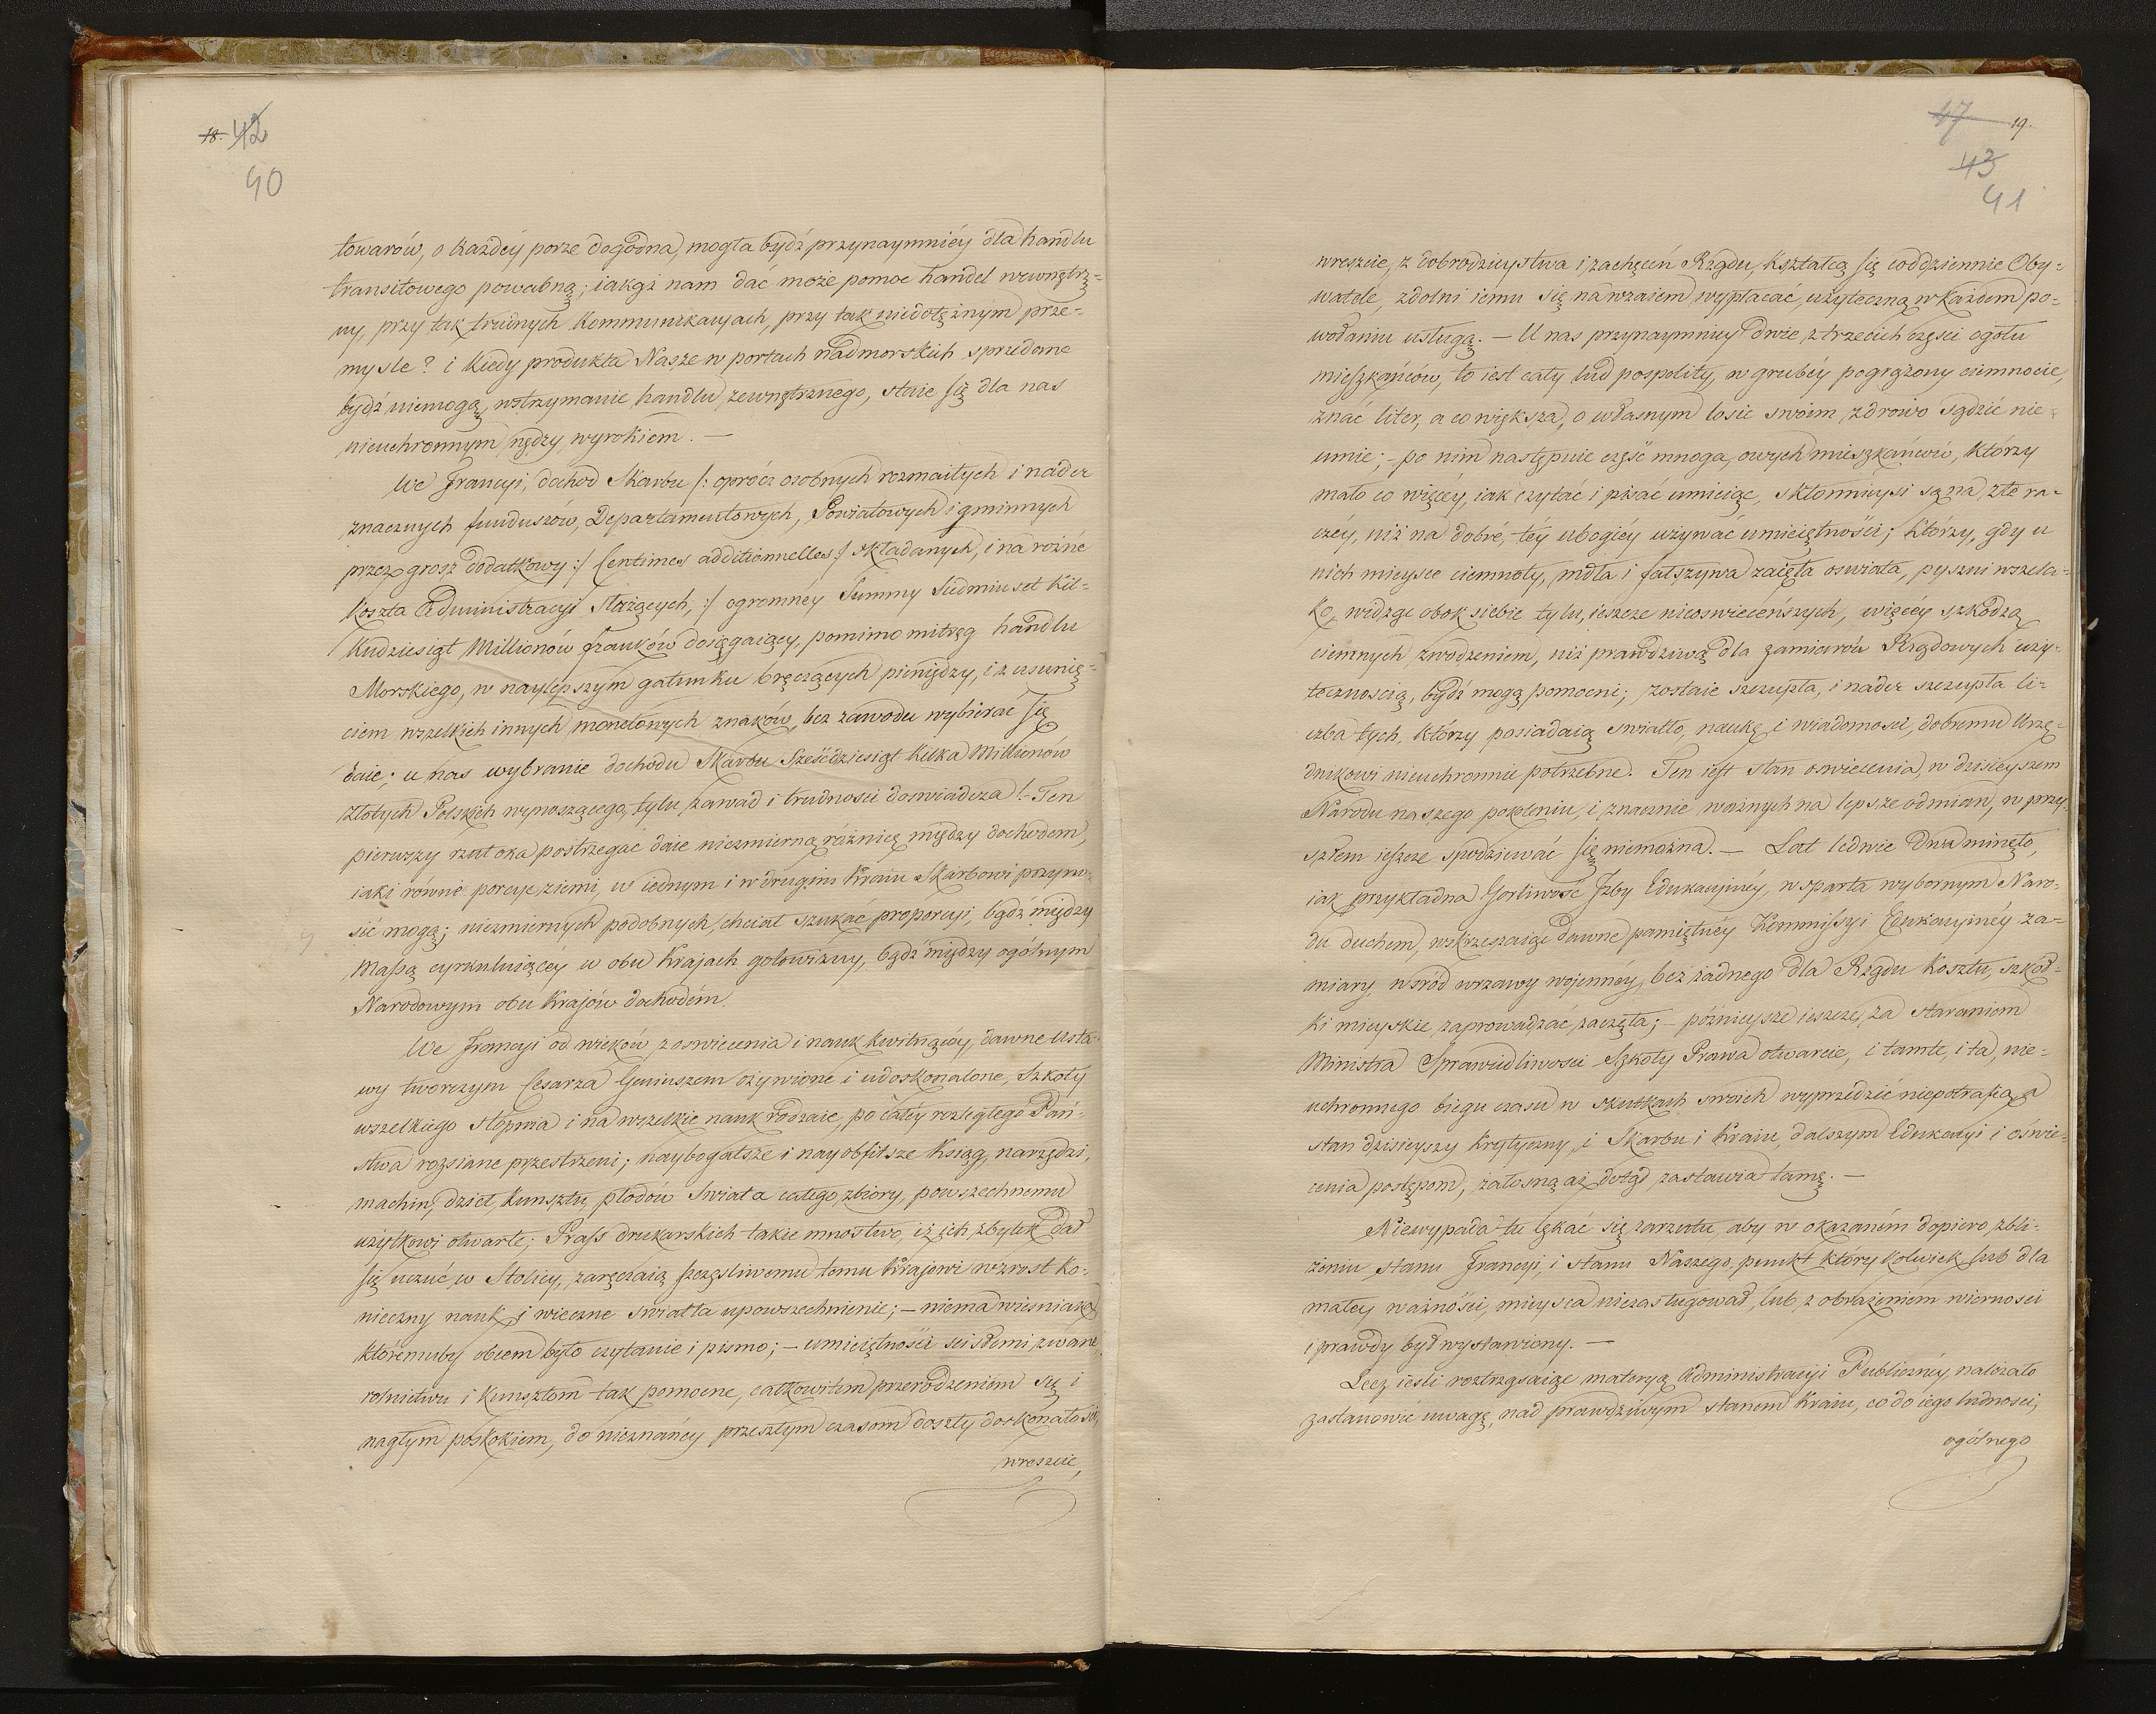 18. 42
40
towarów, o każdéy porze dogodna, mogła bydź przynaymniéy dla handlu
transitowego powabną; iakąż nam dać może pomoc handel wewnętrz=
ny, przy tak trudnych kommunikacyach, przy tak niedołężnym prze=
mysle? i kiedy produkta Nasze w portach nadmorskich sprzedane
bydź niemogą, wstrzymanie handlu zewnętrznego, staie się dla nas
nieuchronnym nędzy wyrokiem. —
We Francyi, dochod Skarbu /: oprócz osobnych rozmaitych i nader
znacznych funduszów, Departamentowych, Powiatowych i gminnych
przez grosz dodatkowy :/ Centimes additionnelles / składanych, i na rożne
koszta Administracyi służących, :/ ogromnéy Summy Siedmiuset kil=
kudziesiąt Millionów franków dosięgaiący, pomimo mitręg handlu
Morskiego, w naylepszym gatunku brzęczących pieniędzy, i z usunię=
ciem wszelkich innych monetowych znaków, bez zawodu wybierać się
daie; u nas wybranie dochodu Skarbu Sześćdziesiąt kilka Millionów
Złotych Polskich wynoszącego, tylu zawad i trudności doświadcza! – Ten
pierwszy rzut oka postrzegać daie niezmierną różnicę między dochodem,
iaki równe porcye ziemi, w iednym i w drugim Kraiu Skarbowi przyno=
sić mogą; niezmiernych podobnych, chciał szukać proporcyi, bądź między
Massą cyrkuluiącéy w obu Krajach gotowizny, bądź między ogólnym
Narodowym obu Krajów dochodém.
We Francyi od wieków z oswiecenia i nauk kwitnącéy, dawne usta=
wy tworczym Cesarza Geniuszem ożywione i udoskonalone, Szkoły
wszelkiego stopnia i na wszelkie nauk rodzaie, po całéy rozległego Pań=
stwa rozsiane przestrzeni; naybogatsze i nayobfitsze Ksiąg, narzędzi,
machin, dzieł, kunsztu, płodów świata całego, zbiory, powszechnemu
użytkowi otwarte; Prass drukarskich takie mnostwo, iż ich zbytek dał
się uczuć w Stolicy, zaręczaią szczęsliwemu temu Krajowi wzrost ko=
nieczny nauk, i wieczne swiatła upowszechnienie; – niema wiesniaka
któremuby obcem było czytanie i pismo; – umieiętności scisłemi zwane,
rolnictwu i kunsztom tak pomocne, całkowitem przerodzeniem się i
nagłym poskokiem, do nieznanéy przeszłym czasom doszły doskonałości,
wreszcie,
47 19.
43
41
wreszcie, z dobrodzieystwa i zachęceń Rządu, kształcą się coddziennie Oby=
watele, zdolni iemu się na wzaiem wypłacać, użyteczną w każdem po=
wołaniu usługą. – U nas przynaymniey dwie z trzecich części ogołu
mieszkańców, to iest cały lud pospolity, w grubéy pogrążony ciemnocie,
znać liter, a co większa, o własnym losie swoim zdrowo sądzić nie
umie; – po nim następuie część mnoga, owych mieszkańców, którzy
mało co więcéy, iak czytać i pisać umieiąc, skłonnieysi są na złe ra=
czéy, niż na dobre, téy ubogiéy używać umieiętności; którzy, gdy u
nich mieysce ciemnoty, mdła i fałszywa zaięła oswiata, pyszni wszela=
ko, widząc obok siebie tylu ieszcze nieoswieceńszych, więcéy szkodzą
ciemnych zwodzeniem, niż prawdziwą dla zamiarów Rządowych uży=
tecznością, bydź mogą pomocni; zostaie szczupła, i nader szczupła li=
czba tych, którzy posiadaią swiatło, naukę i wiadomości, dobremu Urzę=
dnikowi nieuchronnie potrzebne. Ten iest stan oswiecenia, w dzisieyszem
Narodu naszego pokoleniu, i znacznie ważnych na lepsze odmian, w przy=
szłem ieszcze spodziewać się niemożna. – Lat ledwie dwa minęło,
iak przykładna Gorliwość Jzby Edukacyinéy, wsparta wybornym Naro=
du duchem, wskrzeszaiąc dawne pamiętnéy Kommissyi Edukacyinéy za=
miary, wśród wrzawy wojennéy, bez żadnego dla Rządu kosztu, szkół=
ki mieyskie zaprowadzać zaczęła; – późnieysze ieszcze, za staraniem
Ministra Sprawiedliwosci Szkoły Prawa otwarcie, i tamte, i ta, nie=
uchronnego biegu czasu w skutkach swoich wyprzedzić niepotrafią, a
stan dzisieyszy krytyczny, i Skarbu i Kraiu, dalszym Edukacyi i oswie=
cenia postępom, żałosną aż dotąd zastawia tamę. —
Niewypada tu lękać się zarzutu, aby w okazaném dopiero zbli=
żeniu stanu Francyi, i stanu Naszego, punkt który kolwiek lub dla
małéy ważności, mieysca niezasługował, lub z obrażeniem wierności
i prawdy był wystawiony. —
Lecz iesli roztrząsaiąc materyą Administracyi Publicznéy, należało
zastanowić uwagę, nad prawdziwym stanem Kraiu, co do iego ludności,
ogólnego